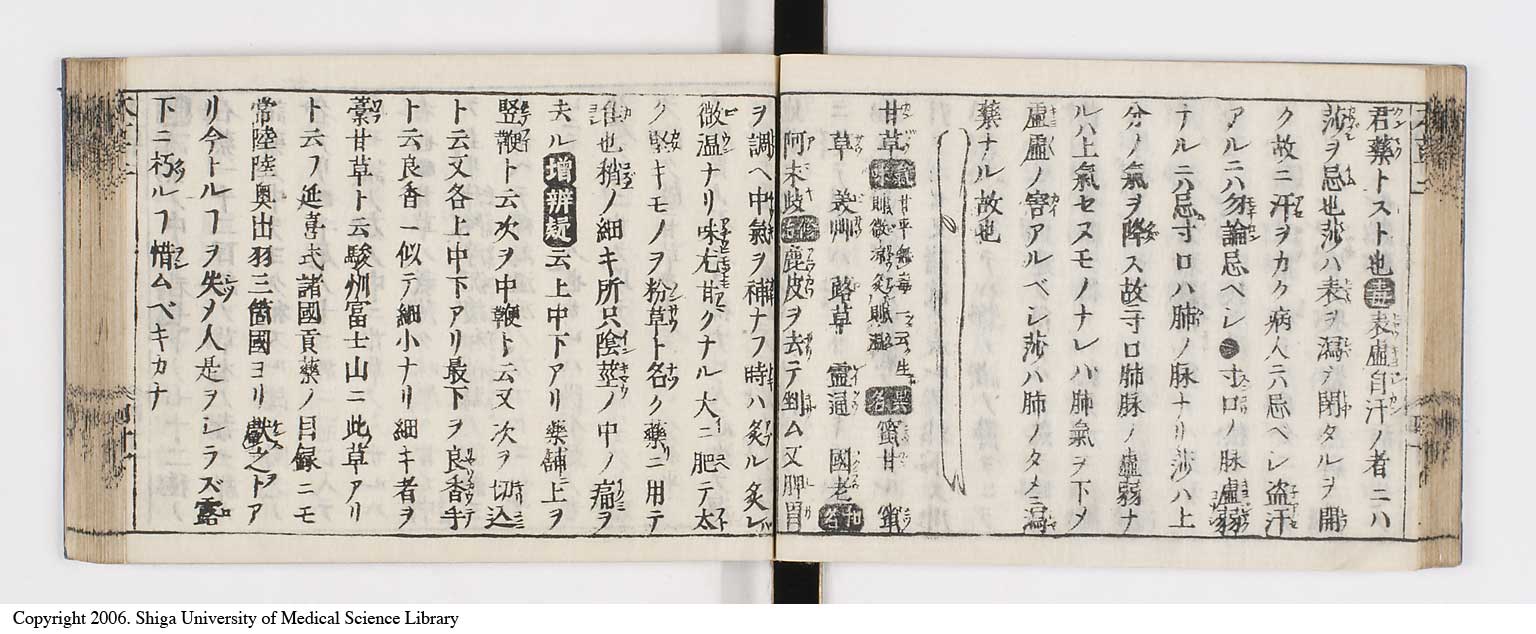 君藥トスト也 毒 表虛自汗ノ者ニハ
莎ヲ忌也莎ハ表ヲ瀉シ閉タルヲ開
ク故ニ汗ヲカク病人ニハ忌ベシ盗汗
アルニハ勿論忌ベシ●寸口ノ脉虛弱
ナルニハ忌寸口ハ肺ノ脉ナリ莎ハ上
分ノ氣ヲ降ス故寸口肺脉ノ虛弱ナ
ルハ上氣セヌモノナレバ肺氣ヲ下メ
虛虛ノ害アルベシ莎ハ肺ノタメニ瀉
藥ナル故也
甘草 氣味 甘平無毒 一云生ハ微涼炙則温 異名 蜜甘 蜜
草 美艸 蕗草 靈通 國老 和名
阿末岐 修治 麁皮ヲ去テ剉ム又脾胃
ヲ調ヘ中氣ヲ補ナフ時ハ炙ル炙レバ
微温ナリ味尤甘クナル大ニ肥テ太
ク堅キモノヲ粉草ト名ク藥ニ用テ
佳也稍ノ細キ所只陰莖ノ中ノ痛ヲ
去ル 增辨疑 云上中下アリ藥舗上ヲ
竪鞭ト云次ヲ中鞭ト云又次ヲ切込
ト云又各上中下アリ最下ヲ良香手
ト云良香ニ似テ細小ナリ細キ者ヲ
藁甘草ト云駿州富士山ニ此草アリ
ト云フ延喜式諸國貢藥ノ目録ニモ
常陸陸奥出羽三箇國ヨリ獻之トア
リ今トルヿヲ失メ人是ヲシラズ露
下ニ朽ルヿ惜ムベキカナ